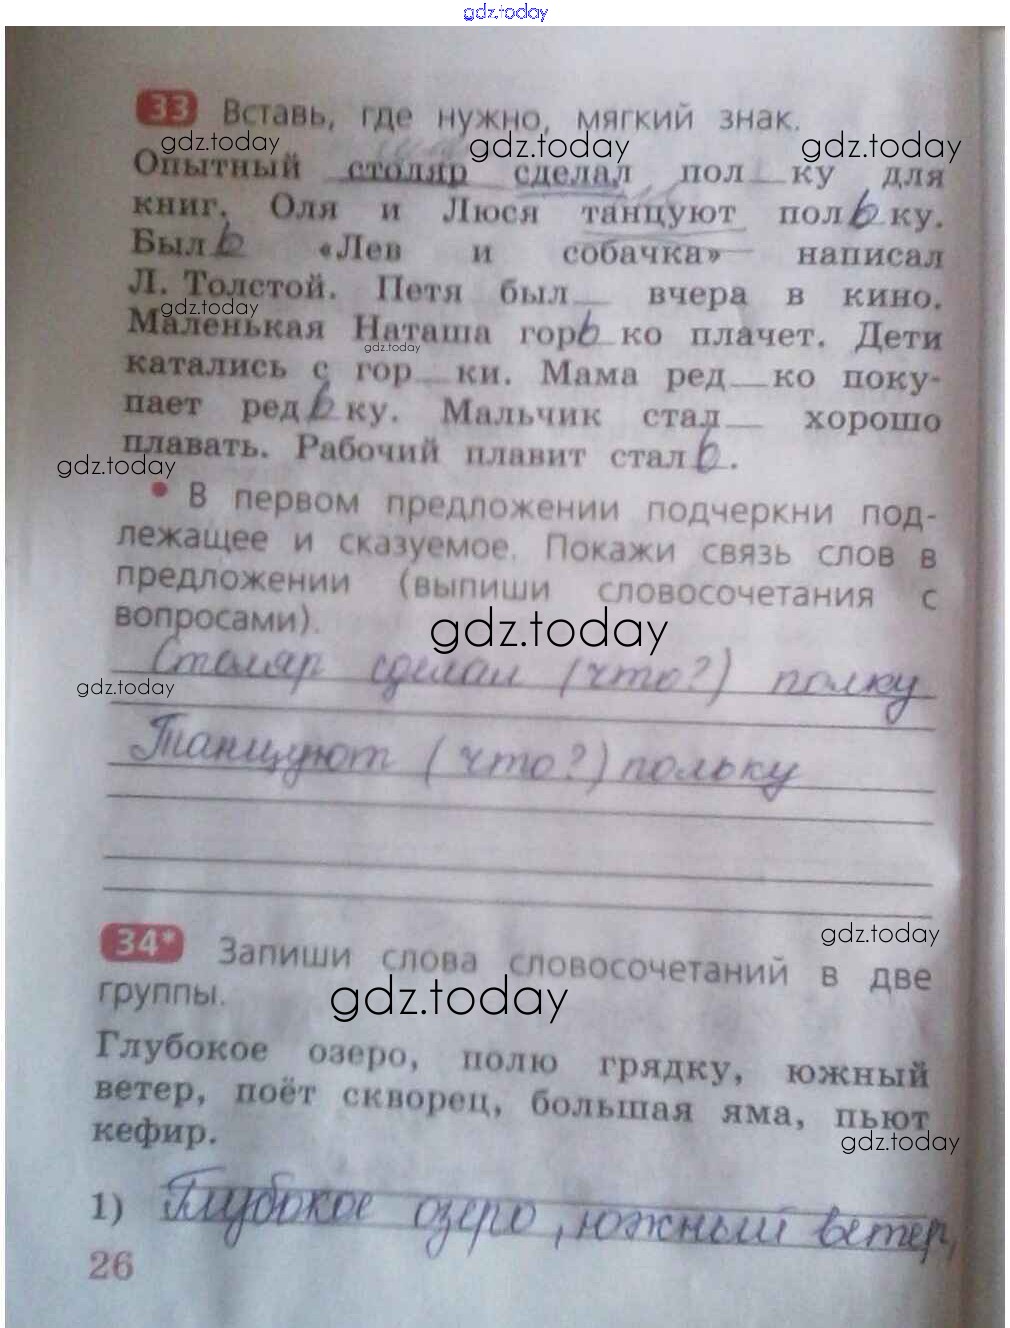 gdz.today
33 Вставь, где нужно, мягкий знак.
gdz.today gdz.today gdz.today
Опытный столяр сделал пол__ку для
книг. Оля и Люся танцуют польку.
Быль «Лев и собачка» написал
Л. Толстой. Петя был__ вчера в кино.
gdz.today
Маленькая Наташа горько плачет. Дети
gdz.today
катались с гор__ки. Мама ред__ко поку-
пает редьку. Мальчик стал__ хорошо
плавать. Рабочий плавит сталь.
gdz.today
• В первом предложении подчеркни под-
лежащее и сказуемое. Покажи связь слов в
предложении (выпиши словосочетания с
вопросами).
gdz.today
Столяр сделал (что?) полку
gdz.today
Танцуют (что?) польку
gdz.today
34* Запиши слова словосочетаний в две
группы.
gdz.today
Глубокое озеро, полю грядку, южный
ветер, поёт скворец, большая яма, пьют
кефир.
gdz.today
1) Глубокое озеро, южный ветер,
26